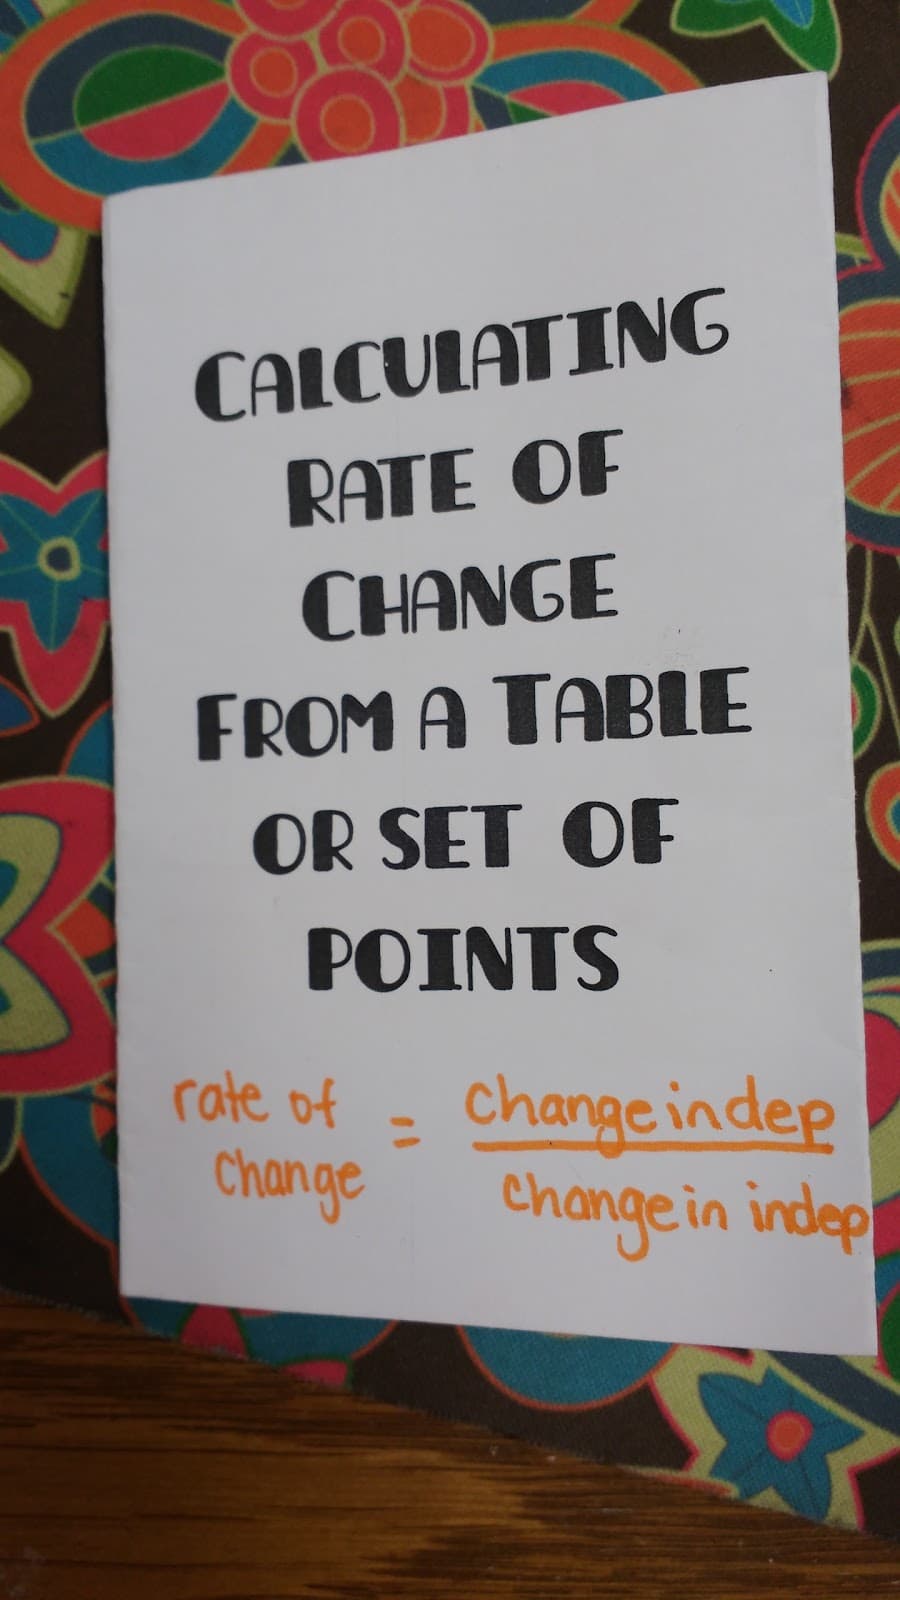 CALCULATING
RATE OF
CHANGE
FROM A TABLE
OR SET OF
POINTS
rate of change = change in dep
change in indep